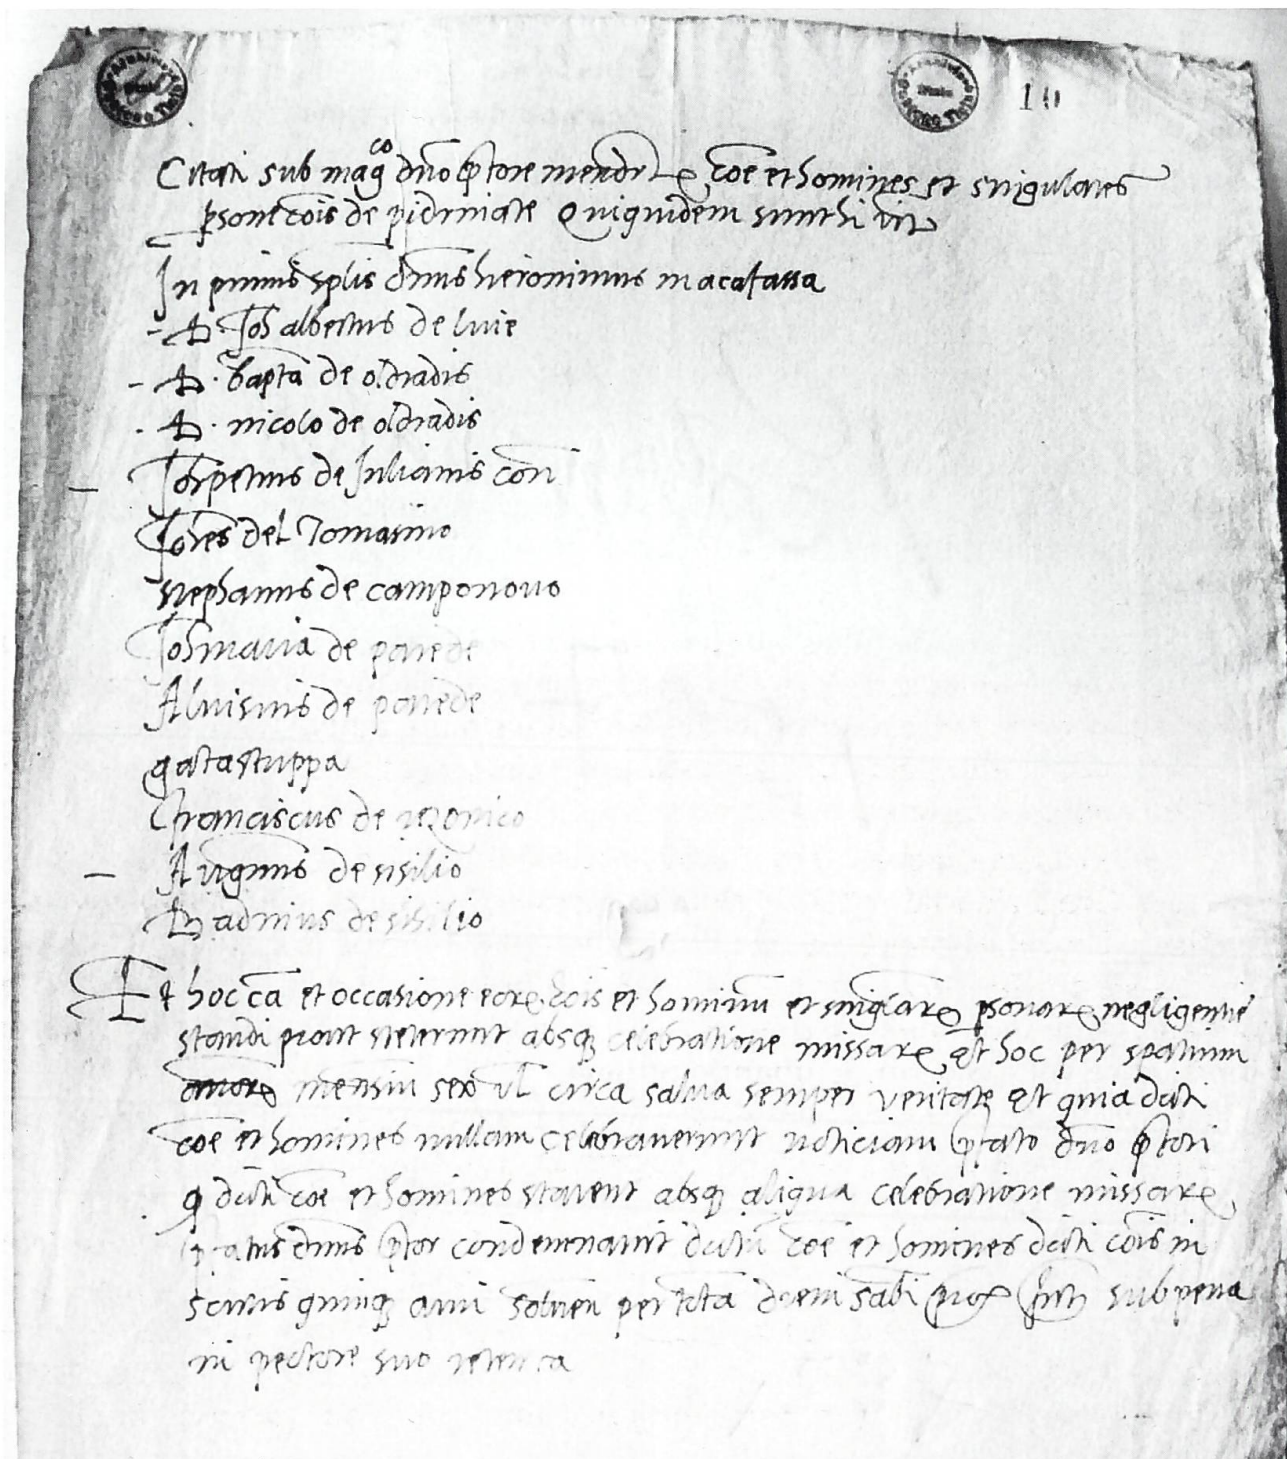 10
Citati sub mag.co dno ptore mendrix coe et homines et singulares
psone cois de pidrinate Qui quidem sunt hi vz
In primis splis dnus hieronimus macacassa
- D. Joh albertus de luie
- D. bapta de oldradis
- D. nicolo de oldradis
- Joh petrus de Julianis con
Johes del Tomasino
stephanus de camponouo
Joh maria de parede
Aluisius de parede
gatastuppa
franciscus de rezonico
- Augnus de sisilio
Badinus de sisilio
Et hoc ca et occasione eor cois et hominu et singlar psonar negligentie
standi prout steterunt absq celebratione missar Et hoc per spatium
annor mensiu sex vl circa salua semper veritate Et quia dicti
coe et homines nullam celebrauerunt noticiam pfato dno ptori
q dicti coe et homines starent absq aliqua celebratione missar
pfatus dnus ptor condemnauit dictu coe et homines dicti cois in
scutis quinq auri soluen per tota diem sabi prox sub pena
in pectore suo retenta